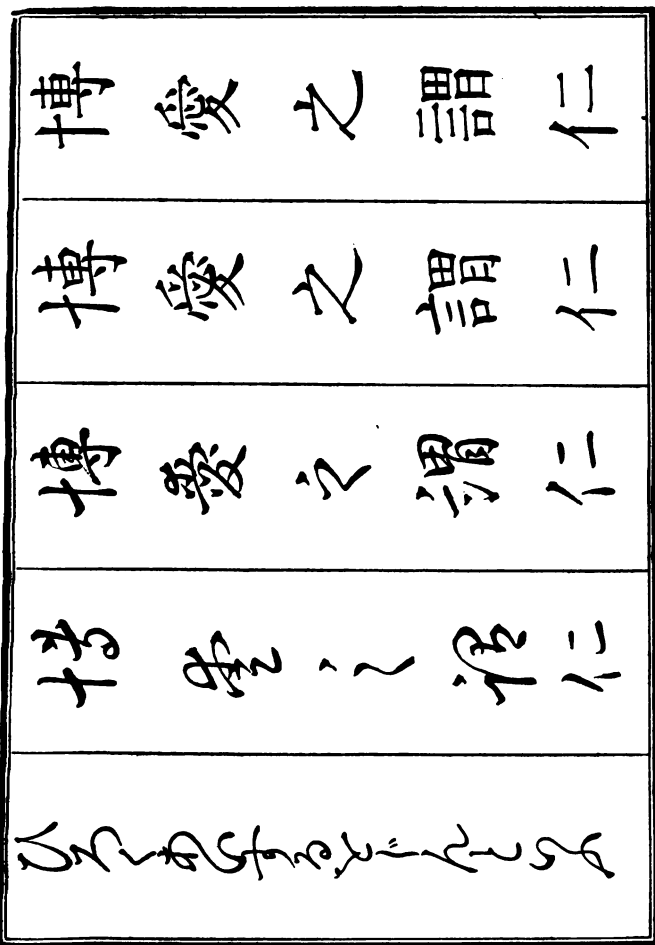 博愛之謂仁
博愛之謂仁
博愛之謂仁
博愛之謂仁
ひろくあいするをじんといふ